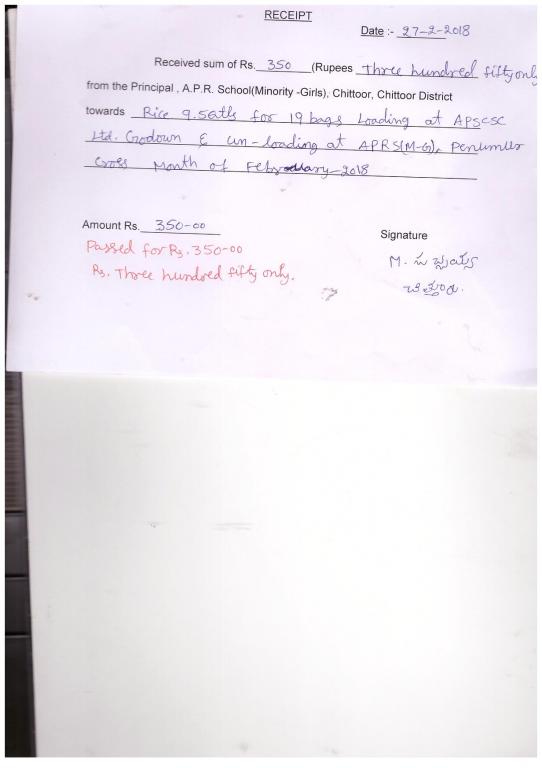 RECEIPT
Date :- 27-2-2018
Received sum of Rs. 350 (Rupees Three hundred fifty only
from the Principal , A.P.R. School(Minority -Girls), Chittoor, Chittoor District
towards Rice 9.5Qtls for 19 bags Loading at APSCSC
Ltd. Godown & un-loading at APRS(M-G), Penumur
Cross Month of February-2018
Amount Rs. 350-00
Signature
Passed for Rs. 350-00
Rs. Three hundred fifty only.
M.